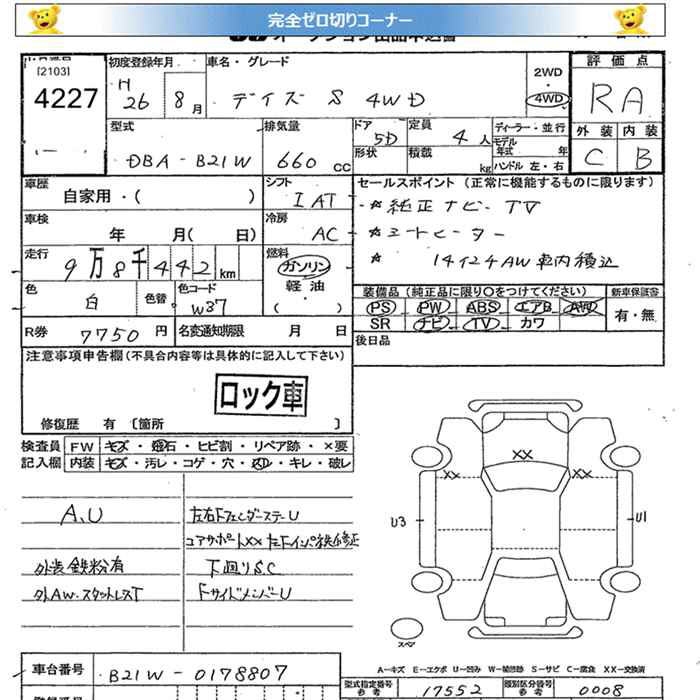 完全ゼロ切りコーナー
[2103]
4227
初度登録年月
H
26 8月
車名・グレード
デイズ S 4WD
2WD
・
4WD
評価点
RA
型式
DBA-B21W
排気量
660 CC
ドア
5D
形状
定員
4人
積載
kg
ディーラー・並行
モデル
年式 年
ハンドル 左・右
外装 内装
C B
車歴
自家用・( )
シフト
IAT
セールスポイント (正常に機能するものに限ります)
☆ 純正ナビ・TV
☆ シートヒーター
☆ 14インチAW車内積込
車検
年 月( 日)
冷房
AC
走行
9万8千442km
燃料
ガソリン
軽油
( )
色
白
色替
色コード
W37
装備品 (純正品に限り○をつけてください)
PS PW ABS エアB AW
SR ナビ TV カワ
新車保証書
有・無
R券
7750円
名変通知期限 月 日
後日品
注意事項申告欄(不具合内容等は具体的に記入して下さい)
ロック車
修復歴 有 〔箇所 〕
検査員
記入欄
FW キズ・飛石・ヒビ割・リペア跡・×要
内装 キズ・汚レ・コゲ・穴・スレ・キレ・破レ
A、U
外装鉄粉有
外AW.スタットレスT
左右Fフェンダーステー U
コアサポートXX 左Fインパネ鉄修正
下廻りS.C
FサイドメンバーU
XX
XX
XX
U3
U1
スペア
車台番号
B21W-0178807
A-キズ E-エクボ U-凹み W-補修跡 S-サビ C-腐食 XX-交換済
型式指定番号
参考
17552
類別区分番号
参考
0008